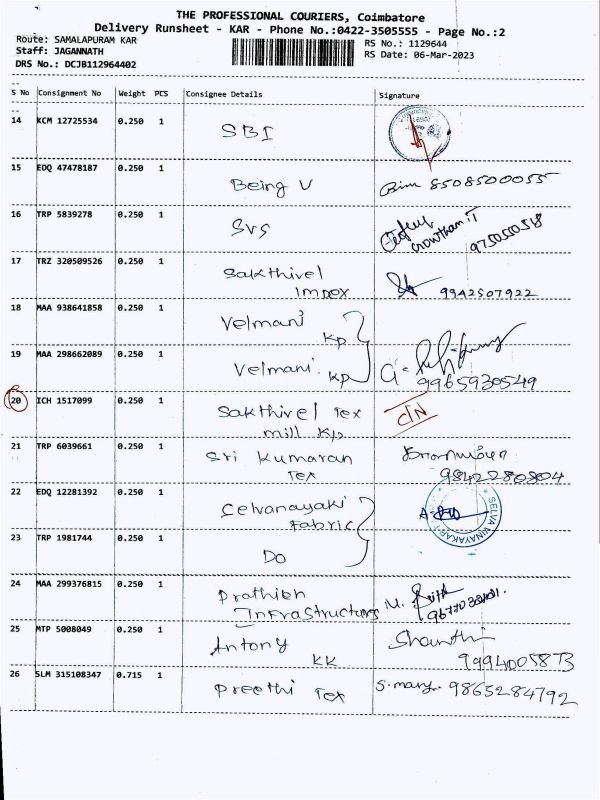 THE PROFESSIONAL COURIERS, Coimbatore
Delivery Runsheet - KAR - Phone No.:0422-3505555 - Page No.:2
Route: SAMALAPURAM KAR
Staff: JAGANNATH
DRS No.: DCJB112964402
RS No.: 1129644
RS Date: 06-Mar-2023
S No Consignment No Weight PCS Consignee Details Signature
14 KCM 12725534 0.250 1 SBI
15 EDQ 47478187 0.250 1 Being U 8508500055
16 TRP 5839278 0.250 1 SVS
Gowtham.T
17 TRZ 320509526 0.250 1 Sakthivel
Impex 9942507922
18 MAA 938641858 0.250 1 Velmani
KP
19 MAA 298662089 0.250 1 Velmani.
KP 9965930549
20 ICH 1517099 0.250 1 Sakthivel Tex C/N
mill KP
21 TRP 6039661 0.250 1 Sri Kumaran
Tex 9842280804
22 EDQ 12281392 0.250 1 Selvanayaki
Fabric
23 TRP 1981744 0.250 1 DO
SELVA VINAYAKAR
24 MAA 299376815 0.250 1 Prathish
Infrastructures M.
25 MTP 5008049 0.250 1 Antony Shanthi
KK
26 SLM 315108347 0.715 1 Preethi Tex S. mary. 9865284792